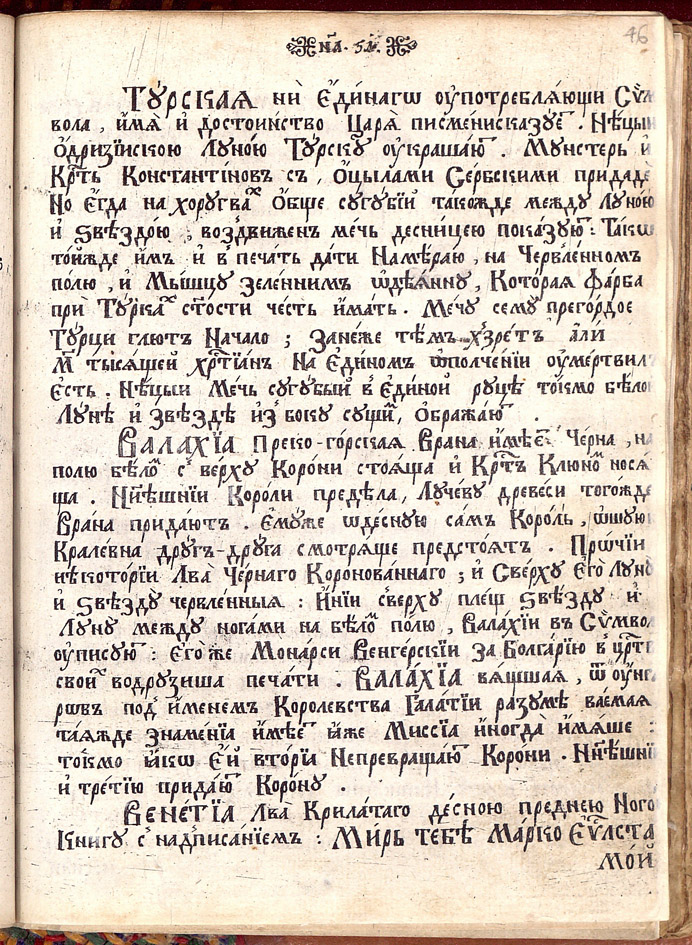 46
на҃. 51.
ТУ́РСКАЯ ни Є҆ди́нагѡ оу҆потребля́ющи Сѷм
вола , и҆́мя и҆ досто́инство Царя̀ писме́нисказуе҆т . Нѣ́цыи
Ѻ҆дризїискою Луно́ю Ту́рскꙋ оу҆краша́ют . Му́нстерь и҆
Крт҃ъ Константи́новъ съ , Ѻ҆цылами Се́рбскими придадѐ
Но Є҆гда̀ на хору́гвах Ѻ҆́бще сугу́бїй тако́жде между Луно́ю
и҆ Ѕвѣздо́ю , воздви́женъ ме́чь десни́цею показу́ют : Та́кѡ
то́йжде и҆́мъ и҆ в̾ печа́ть да́ти Намѣраю , на Черве́нномъ
полю , и҆ Мы́шцу зеле́ннимъ ѡ҆дѣ́янну , Кото́рая фа́рба
при Ту́рках ст҃ости че́сть и҆ма́ть . Ме́чу сему прего́рдое
Ту́рци гл҃ютъ Нача́ло ; Зане́же тѣ́мъ а҆ли́
м҃ ты́сящей хр҃тїа́нъ На Є҆ди́номъ ѡ҆полче́нїи оу҆ме́ртвилъ
є҆́сть . Нѣ́цыи Ме́чь сугу́бый в̾ є҆ди́ной руцѣ̀ то́кмо бѣ́ло
Лунѣ̀ и҆ звѣздѣ̀ и҆з̾ боку су́щїй , Ѻ҆бража́ют .
ВАЛА́ХЇА Преко-го́рская Врана и҆мѣ́ет Че́рна , на
полю бѣ́лом с̾ ве́рху Коро́ни стоя́ща и҆ Крт҃ъ Клю́ном нося́
ща . Нн҃ѣшнїи Короли предѣ́ла , Лу́чеву древеси тогѡ́жде
Вра́на придаю́тъ . Є҆му́же ѡ҆десну́ю са́мъ Коро́ль , ѡ҆шу́юю
Крале́вна дру́гъ-дру́га смотря́ще предстоя́тъ . Прѡ́чїи
нѣкото́рїи Лва̀ Че́рнаго Коронова́ннаго ; и҆ Све́рху є҆гѡ̀ Луну
и҆ Ѕвѣ́зду черве́нныя : И҆нїи све́рху пле́щ Ѕвѣ́зду и҆
Луну между нога́ми на бѣ́лом полю , Вала́хїи въ Сѷмвол
оу҆пису́ют : є҆го́же Мона́рси Венге́рскїи за Болга́рїю в̾ црт҃в
свои́х водрузи́ша печати . ВАЛА́ХЇА вя́щшая , ѿ оу҆нг
рѡвъ под̾ и҆́менемъ Короле́вства Гала́тїи разумѣ ва́емая
та́яжде знаме́нїа и҆мѣ́ет ꙗ҆́же Миссїа и҆ногда̀ и҆мя́ше :
то́кмо ꙗ҆́кѡ є҆́й вто́рїи Непревраща́ют Коро́ни . Нн҃ѣшнїи
и҆ тре́тїю придаю́т Коро́ну .
ВЕНЕ́ТЇА Лва̀ Крила́таго де́сною пре́днею Ного
Кни́гу с̾ на́дписанїемъ : Ми́рь тебѣ̀ Ма́рко Є҆ѵⷢ҇лста
МО́Й